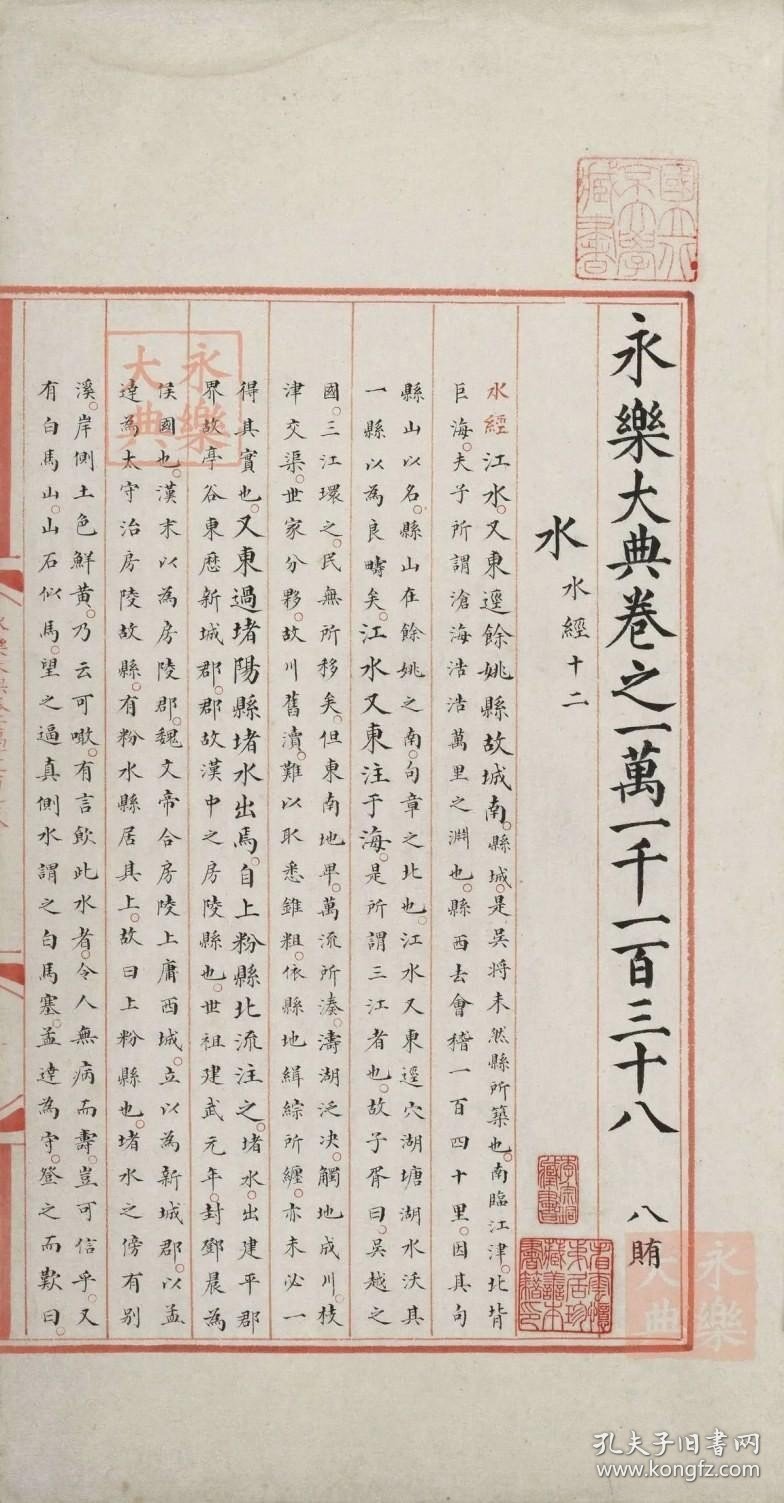 永樂大典卷之一萬一千一百三十八 八賄
水 水經十二
水經江水。又東逕餘姚縣故城南。縣城。是吳將朱然縣所築也。南臨江津。北背
巨海。夫子所謂滄海浩浩萬里之淵也。縣西去會稽一百四十里。因其句
縣山以名。縣山在餘姚之南。句章之北也。江水又東逕穴湖塘湖水沃其
一縣以為良疇矣。江水又東注于海。是所謂三江者也。故子胥曰。吳越之
國。三江環之。民無所移矣。但東南地卑。萬流所湊。濤湖泛决。觸地成川。枝
津交渠。世家分夥。故川舊瀆。難以取悉錐粗。依縣地緝綜所纏。亦未必一
得其實也。又東過堵陽縣堵水出焉。自上粉縣北流注之。堵水。出建平郡
界故亭谷東歷新城郡。郡故漢中之房陵縣也。世祖建武元年。封鄧晨為
侯國也。漢末以為房陵郡。魏文帝合房陵上庸西城。立以為新城郡。以孟
達為太守治房陵故縣。有粉水縣居其上。故曰上粉縣也。堵水之傍有别
溪。岸側土色鮮黃。乃云可噉。有言飲此水者。令人無病而壽。豈可信乎。又
有白馬山。山石似馬。望之逼真側水謂之白馬塞。孟達為守。登之而歎曰。
國立北京大學藏書
永樂大典
永樂大典
孔夫子旧书网
www.kongfz.com